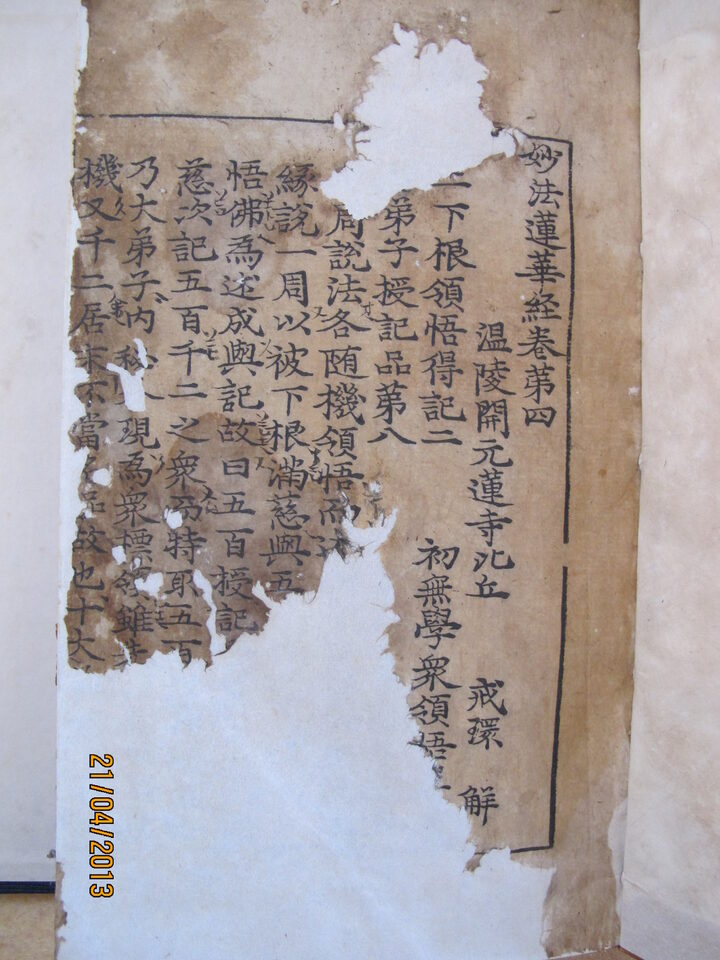 妙法蓮華経卷苐四
温陵開元蓮寺比丘 戒環 解
二下根領悟得記二 初無學衆領悟
弟子授記品苐八
周說法各随機領悟而
緣說一周以被下根滿慈與五
悟佛為述成與記故曰五百授記
慈次記五百千二之衆而特取五百
乃大弟子內秘 現為衆標領雖
機又千二居末不當 品故也十大
21/04/2013